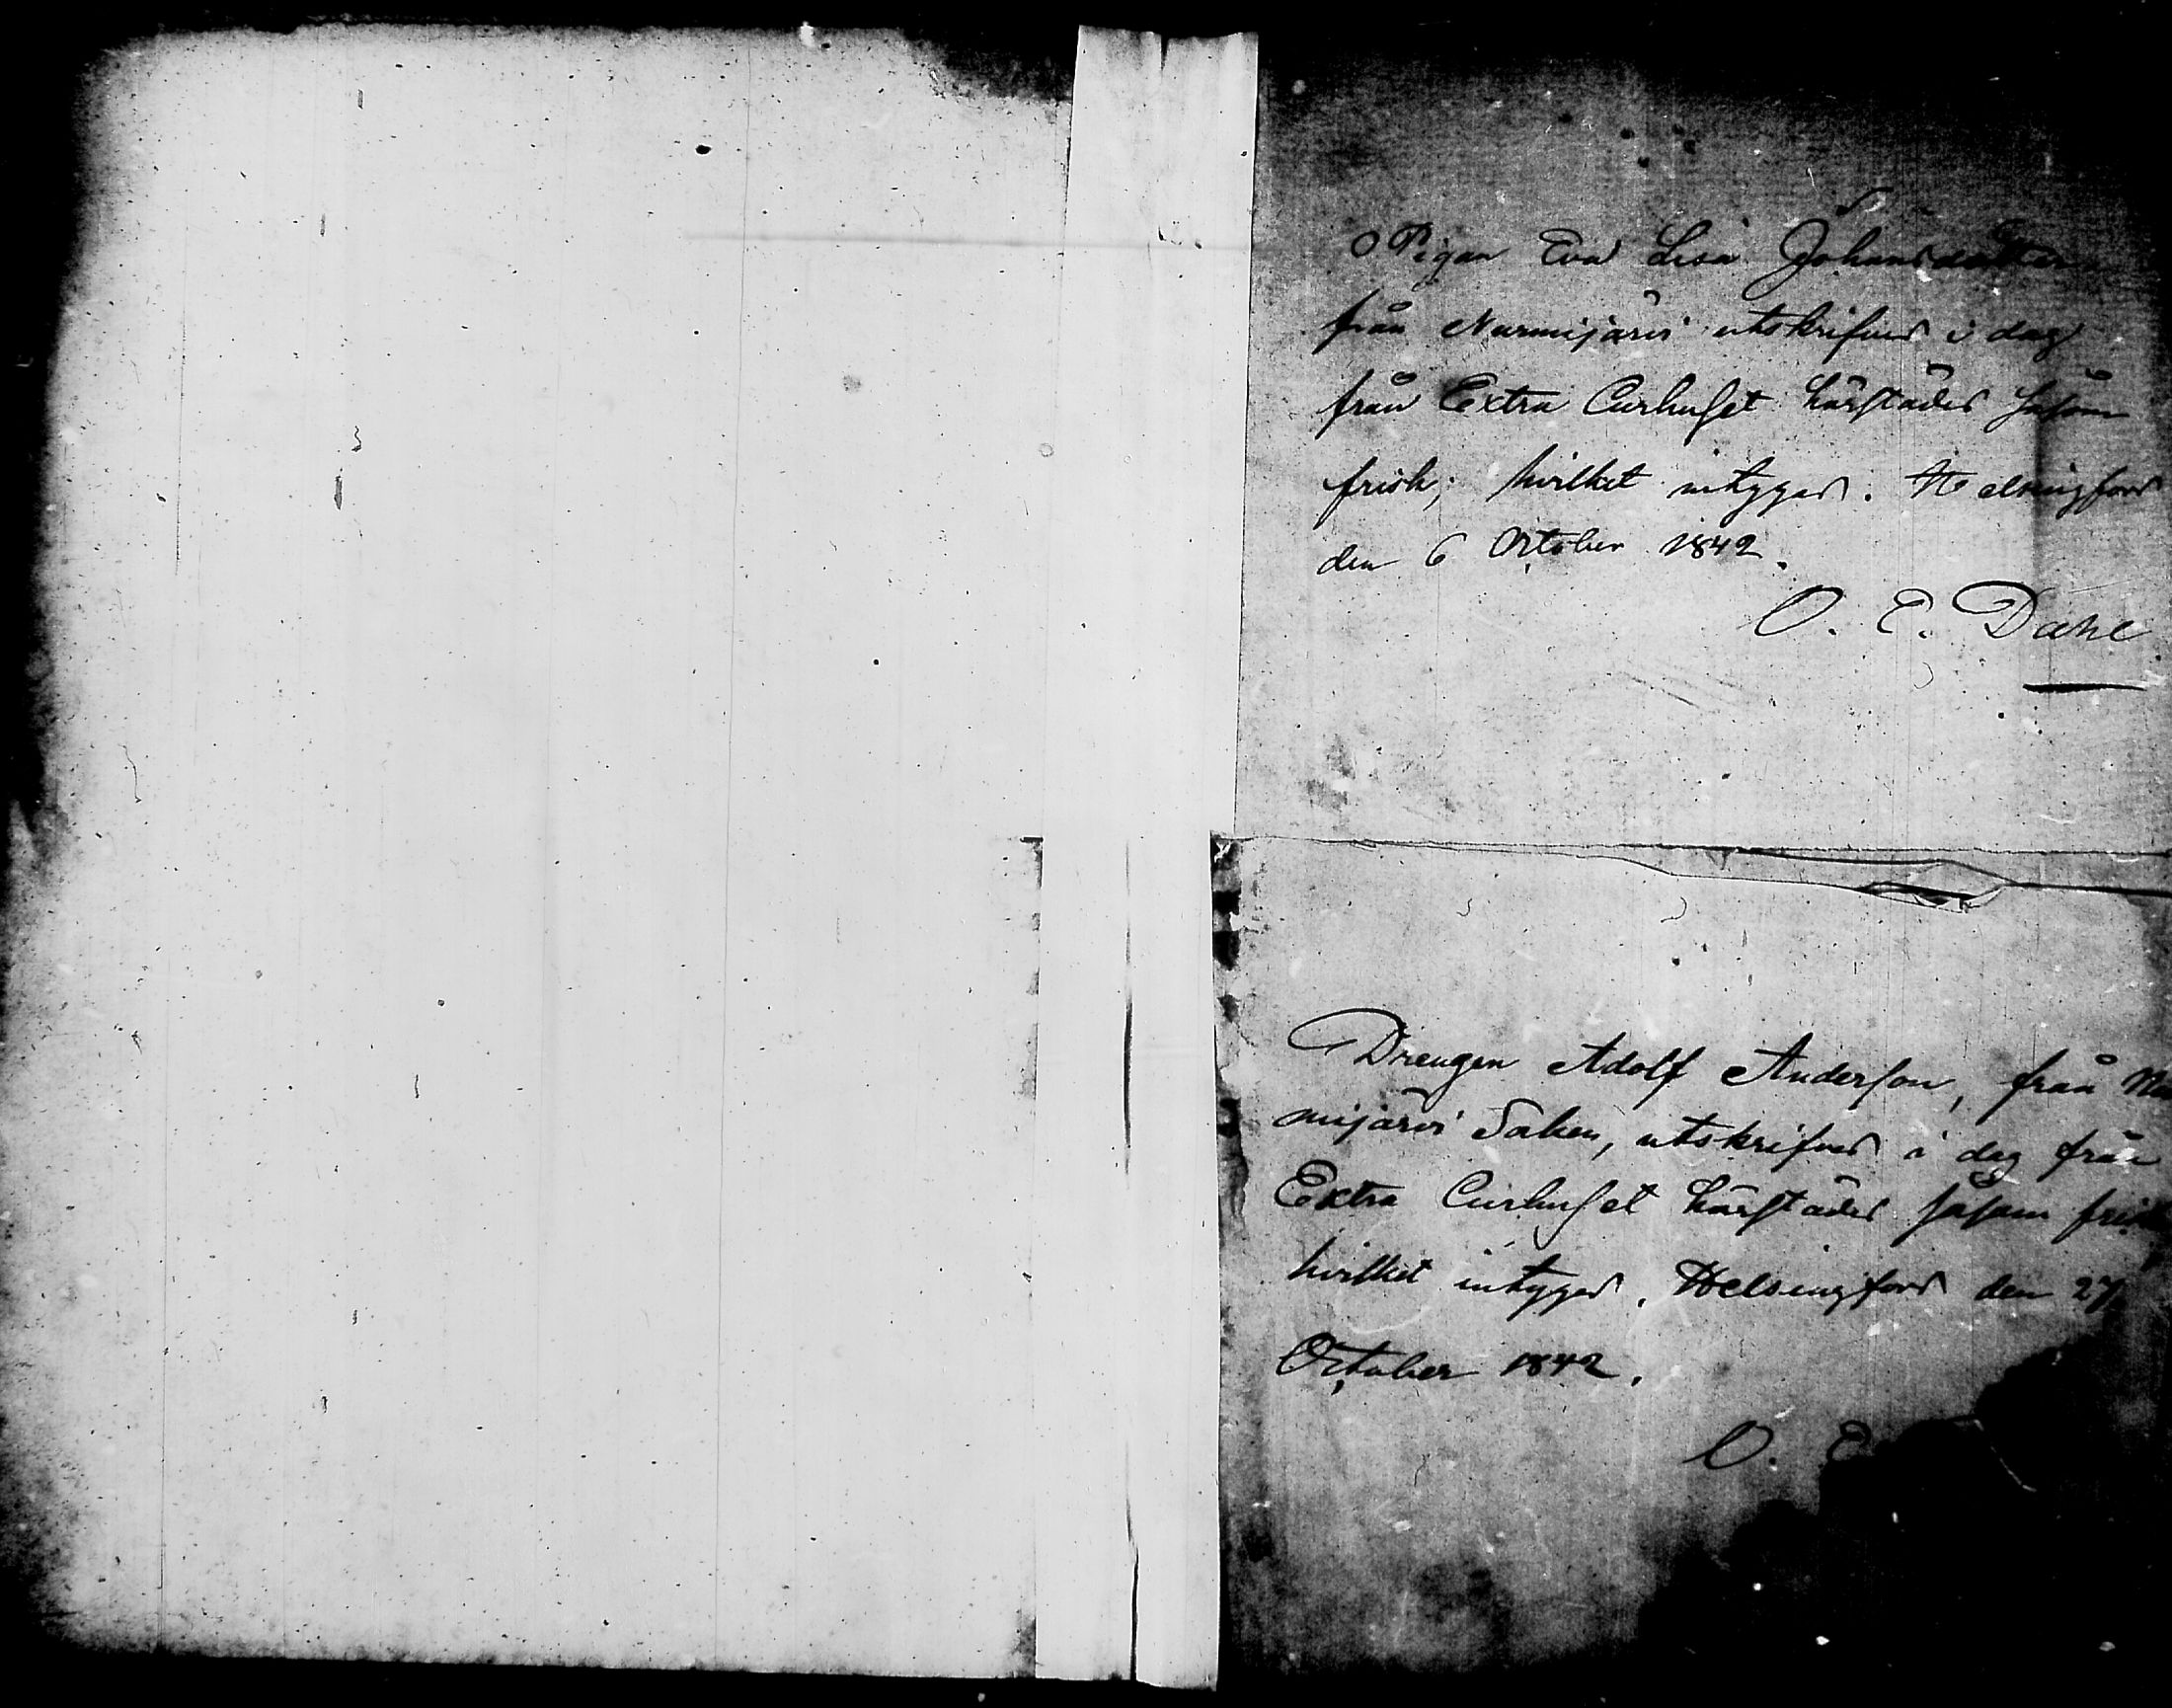 Pigan Eva Lisa Johansdotter
från Nurmijärvi utskrifves i dag
från Extra Curhuset härstädes såsom
frisk; hvilket intygas. Helsingfors
den 6 October 1842.
O. E. Dahl
Drengen Adolf Anderson, från Nur
mijärvi Soken, utskrifves i dag från
Extra Curhuset härstädes såsom frisk
hvilket intygas. Helsingfors den 27
October 1842.
O. E